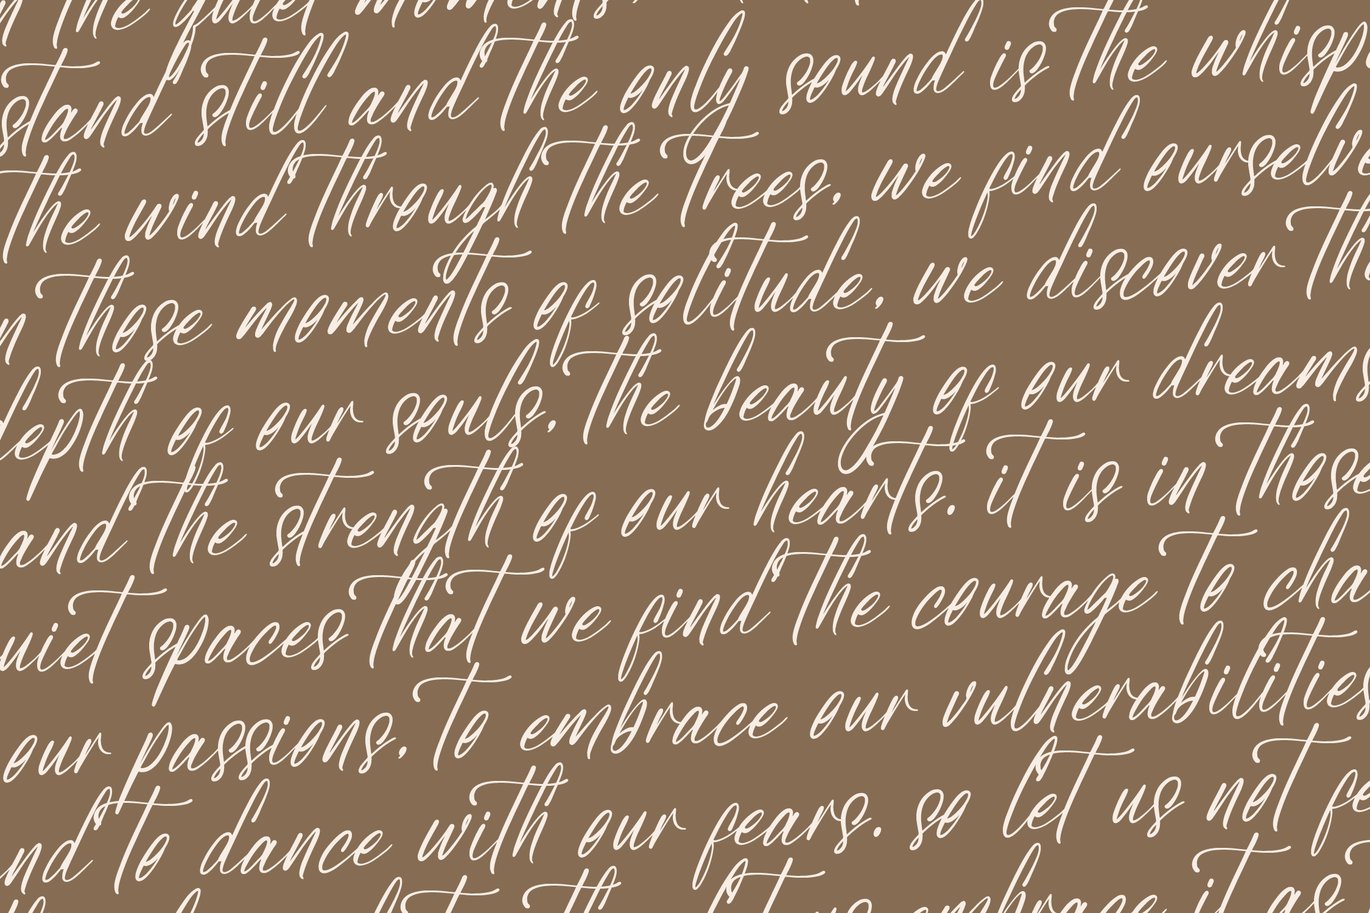 the quiet moments,
stand still and the only sound is the whisp
the wind through the trees, we find ourselve
n those moments of solitude, we discover th
depth of our souls, the beauty of our dreams
and the strength of our hearts. it is in those
uiet spaces that we find the courage to cha
our passions, to embrace our vulnerabilities
nd to dance with our fears. so let us not fe
embrace it as